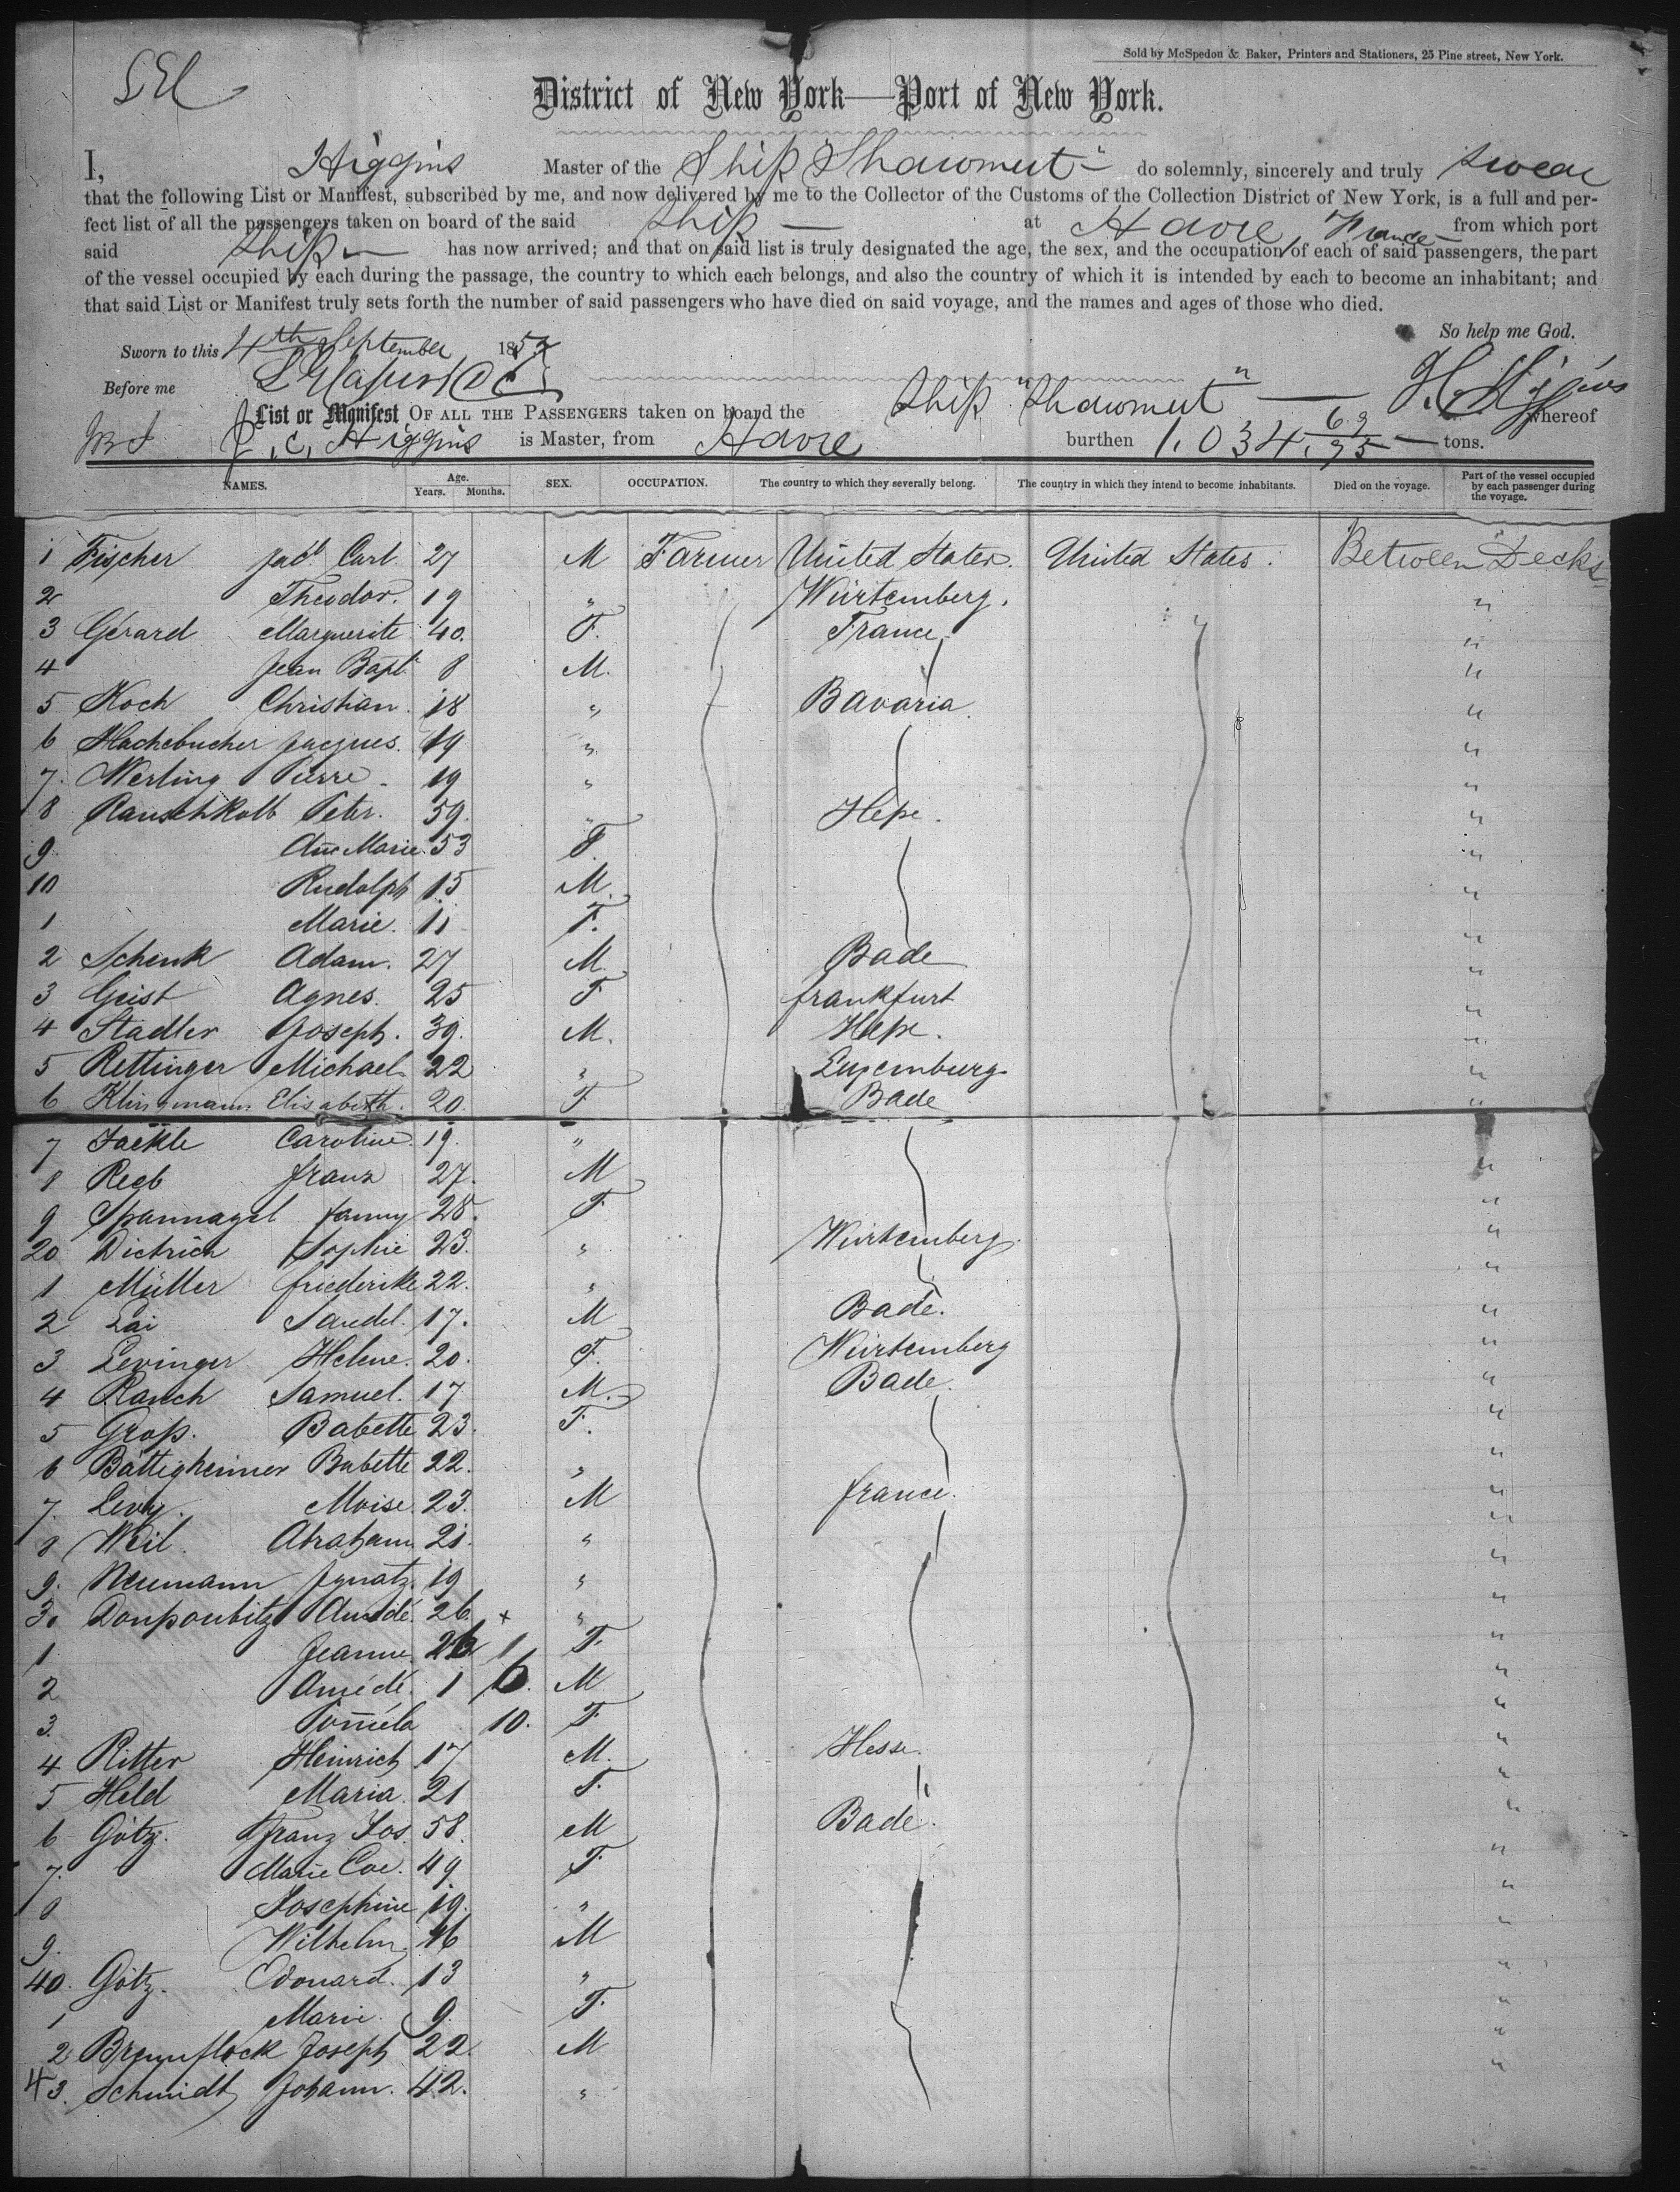 Sold by McSpedon & Baker, Printers and Stationers, 25 Pine street, New York.
District of New York—Port of New York.
I, Higgins Master of the Ship "Shawmut" do solemnly, sincerely and truly swear
that the following List or Manifest, subscribed by me, and now delivered by me to the Collector of the Customs of the Collection District of New York, is a full and per-
fect list of all the passengers taken on board of the said Ship — at Havre, France from which port
said Ship — has now arrived; and that on said list is truly designated the age, the sex, and the occupation of each of said passengers, the part
of the vessel occupied by each during the passage, the country to which each belongs, and also the country of which it is intended by each to become an inhabitant; and
that said List or Manifest truly sets forth the number of said passengers who have died on said voyage, and the names and ages of those who died.
So help me God.
Sworn to this 4th September 1857
Before me
List or Manifest OF ALL THE PASSENGERS taken on board the Ship "Shawmut" — whereof
J. C. Higgins is Master, from Havre burthen 1.034. 63/95 — tons.
NAMES. Age. Years. Months. SEX. OCCUPATION. The country to which they severally belong. The country in which they intend to become inhabitants. Died on the voyage. Part of the vessel occupied by each passenger during the voyage.
1 Fischer Jacb Carl 27 M Farmer United States. United States. Between Decks
2 Theodor. 19 " Würtemberg. "
3 Gérard Marguerite 40. F. France "
4 Jean Bapt. 8 M. "
5 Koch Christian. 18 " Bavaria. "
6 Hachebucher Jacques. 19 " "
7. Nerling Pierre 19 " "
8 Rauschkolb Peter. 59. " Heſse. "
9 Ane Marie. 53 F. "
10 Rudolph 15 M. "
1 Marie. 11 F. "
2 Schenk Adam. 27 M. Bade "
3 Geist Agnes. 25 F frankfurt "
4 Stadler Joseph. 39. M. Heſse. "
5 Rettinger Michael 22 " Luxemburg "
6 Klingmann Elisabeth. 20. F Bade "
7 Jackle Caroline. 19. "
8 franz 27. M "
9 Spannagel fanny 28. F. "
20 Dietrich Sophie 23. " Würtemberg. "
1 Müller friederike 22. " "
2 Lai 17. M Bade. "
3 Levinger Helene. 20. F. Würtemberg "
4 Rauch Samuel. 17 M. Bade. "
5 Groſs. Babette 23. F. "
6 Battigheimer Babette 22. " "
7. Levy. Moise. 23. M france. "
8 Weil. Abraham 21. " "
9. Neumann Ignatz. 19 " "
30 Amédé. 26. + " "
1 Jeanne. 26 1 F. "
2 Amédé. 1 6. M "
3. 10. F. "
4 Ritter Heinrich 17 M. Hesse. "
5 Held Maria. 21 F. " "
6 Götz. Franz Jos. 58. M Bade. "
7. Marie Eve. 49 F "
8 Josephine 19. " "
9. Wilhelm. 16 M "
40. Götz. Edouard. 13 " "
1 Marie. 9. F. "
2 Joseph 22. M "
43. Schmidt Johann. 42. "